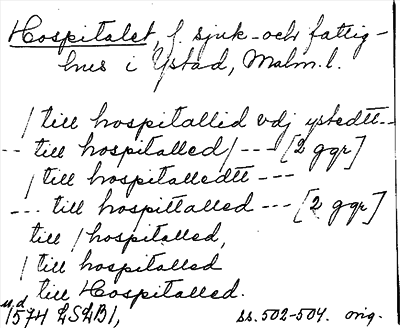 Hospitalet, f. sjuk- och fattig-
hus i Ystad, Malm. l.
/ till hospitallid vdj ystedtt --
-- till hospitalled / --- [2 ggr]
/ till hospitalledtt ---
--- till hospittalled --- [2 ggr]
till / hospitalled,
/ till hospitalled
till Hospitalled.
u.d.
1574 LSLB1, ss. 502-504. orig.